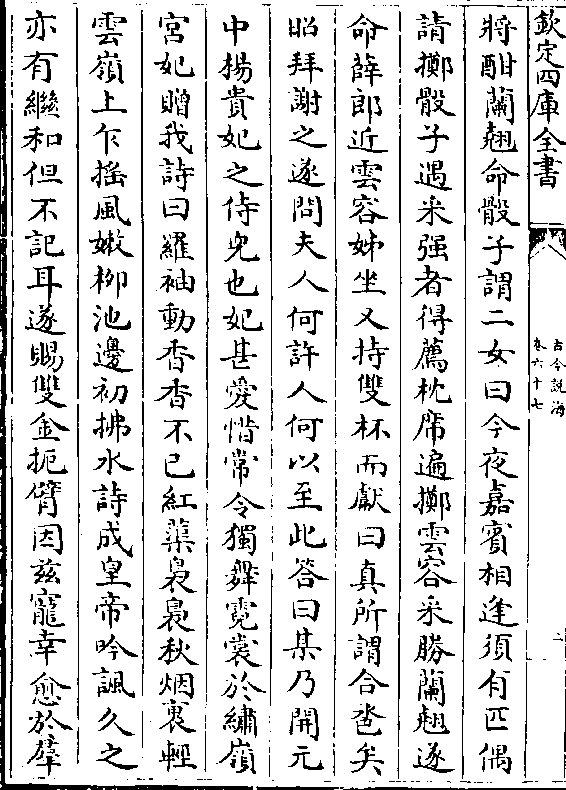 欽定四庫全書
古今說海
卷六十七
二
將酣蘭翹命骰子謂二女曰今夜嘉賓相逢須有匹偶
請擲骰子遇采强者得薦枕席遍擲雲容采勝蘭翹遂
命薛郎近雲容姊坐又持雙杯而獻曰真所謂合巹矣
昭拜謝之遂問夫人何許人何以至此答曰某乃開元
中楊貴妃之侍兒也妃甚愛惜常令獨舞霓裳於繡嶺
宮妃贈我詩曰羅袖動香香不已紅蕖裊裊秋烟裏輕
雲嶺上乍摇風嫩柳池邊初拂水詩成皇帝吟諷久之
亦有繼和但不記耳遂賜雙金扼臂因兹寵幸愈於羣